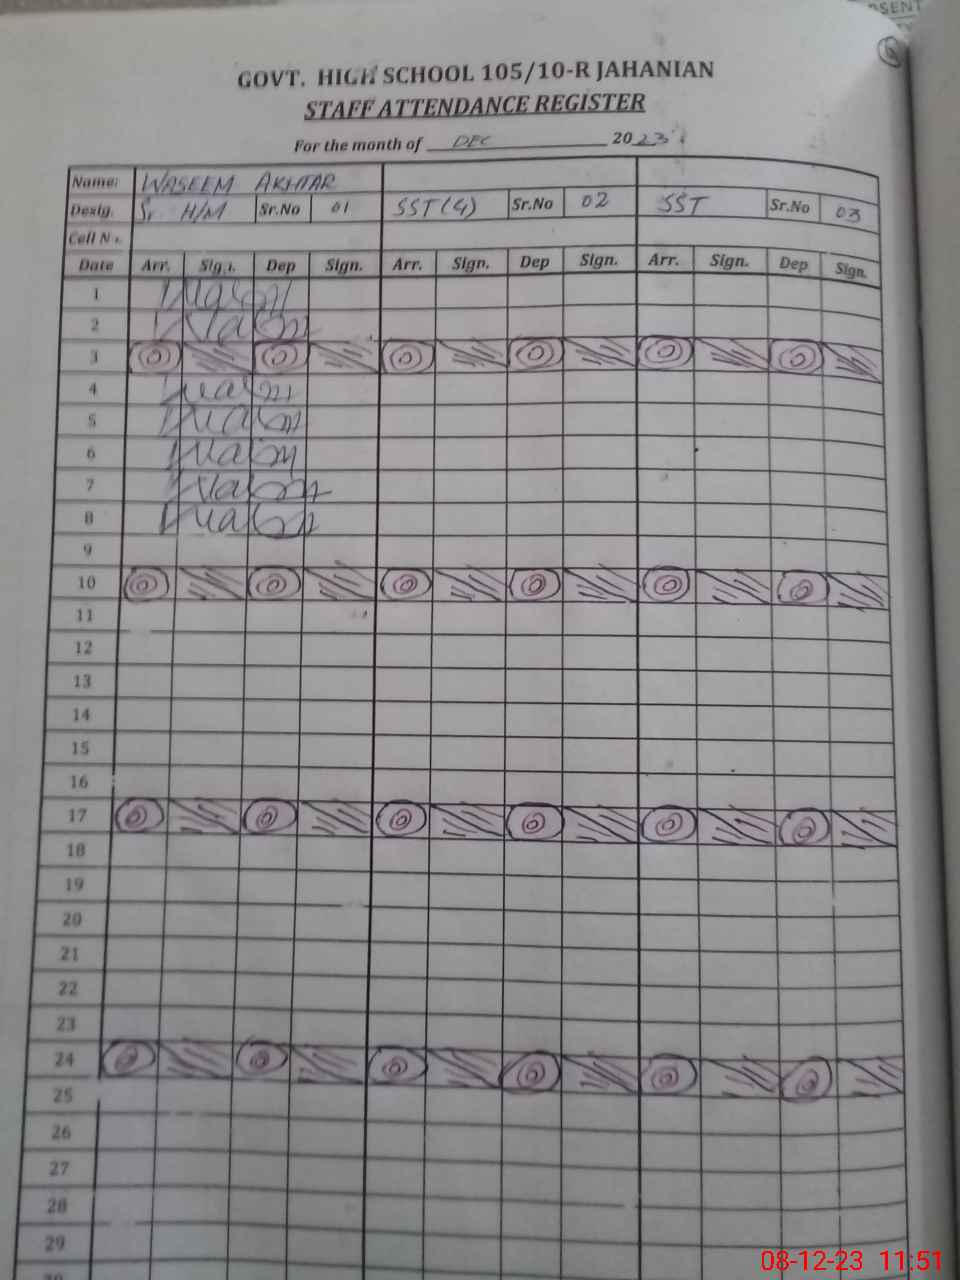 GOVT. HIGH SCHOOL 105/10-R JAHANIAN
STAFF ATTENDANCE REGISTER
For the month of DEC 2023
Name: WASEEM AKHTAR
Desig. Sr. H/M Sr.No 01 SST (G) Sr.No 02 SST Sr.No 03
Cell No.
Date Arr. Sign. Dep Sign. Arr. Sign. Dep Sign. Arr. Sign. Dep Sign.
1
2
3
4
5
6
7
8
9
10
11
12
13
14
15
16
17
18
19
20
21
22
23
24
25
26
27
28
29
08-12-23 11:51